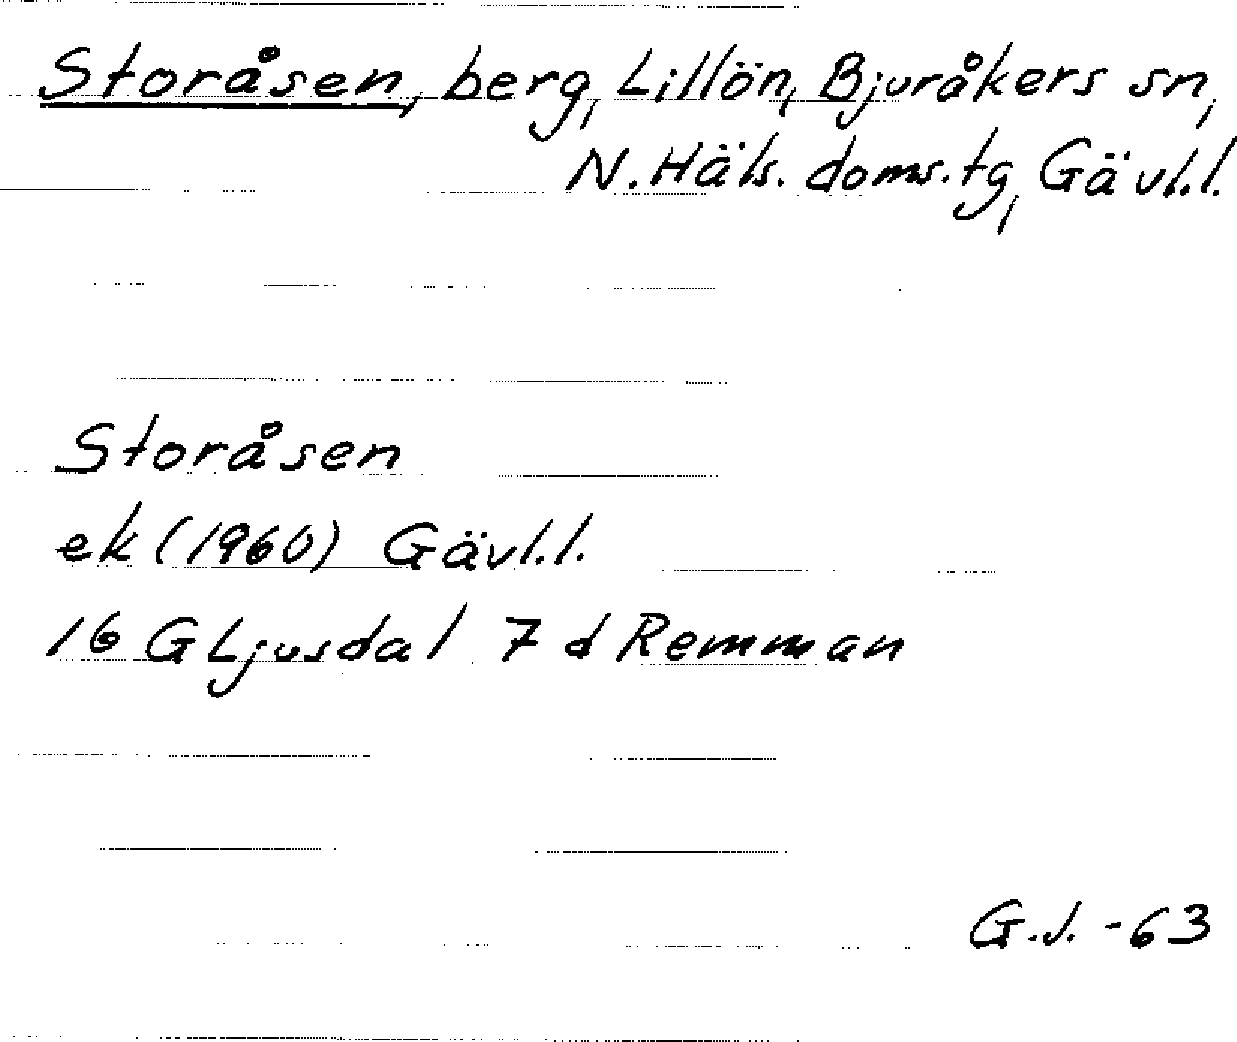 Storåsen, berg, Lillön, Bjuråkers sn,
N. Häls. doms. tg, Gävl.l.
Storåsen
ek (1960) Gävl.l.
16 G Ljusdal 7 d Remman
G.J. -63